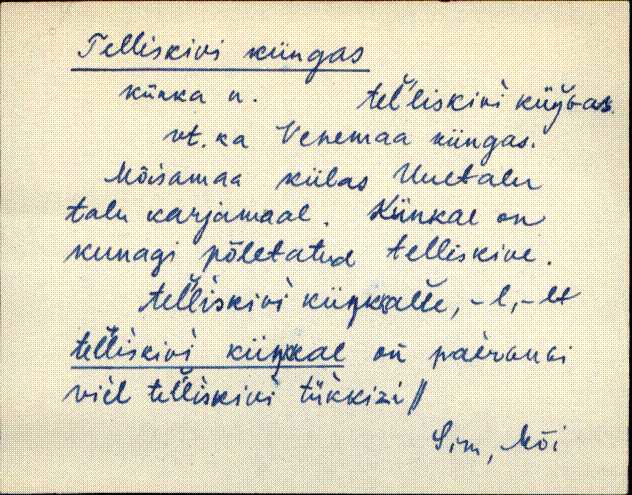 Telliskivi küngas
künka n. tel̆liskivì küŋGas.
vt. ka Venemaa küngas.
Mõisamaa külas Uuetalu
talu karjamaal. Künkal on
kunagi põletatud telliskive.
tel̆liskivì küŋkalle, -l, -lt
tel̆liskivì küŋkal on päranai
viel tel̆liskivì tükkizi //
Sim, Mõi